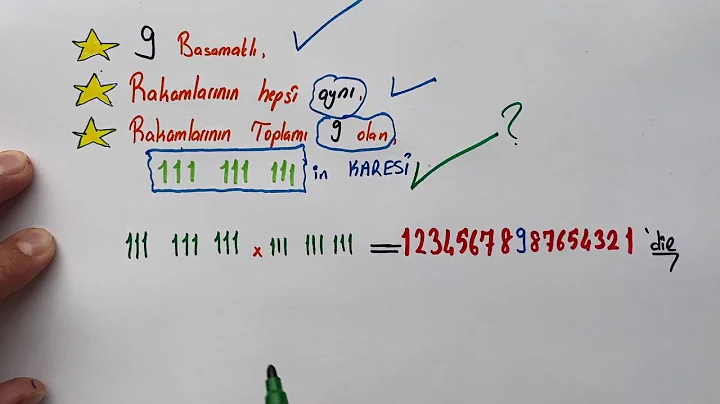 9 Basamaklı,
Rakamlarının hepsi aynı,
Rakamlarının Toplamı 9 olan,
111 111 111 in KARESİ ?
111 111 111 x 111 111 111 = 12345678987654321 'dir